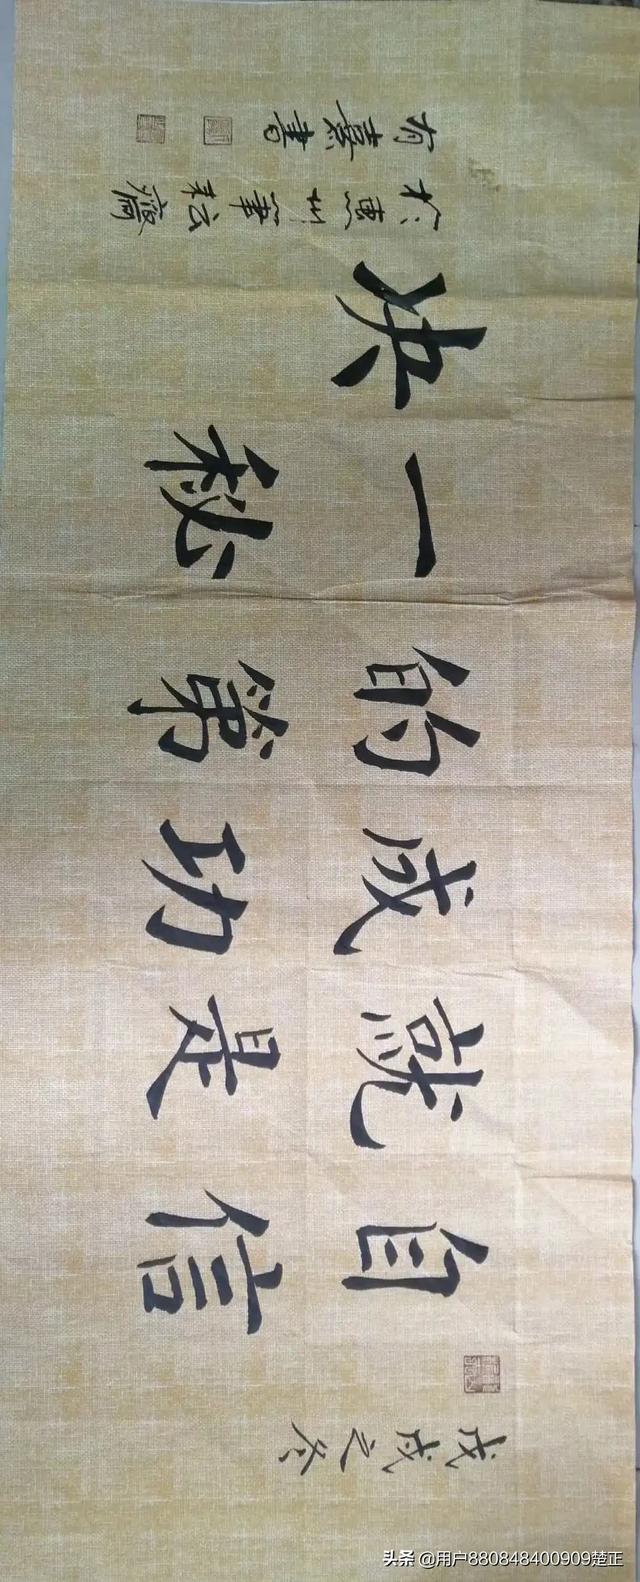 戊戌之冬
自信
就是
成功
的第
一秘
决
於惠州筆耘齋
有書
头条 @用户880848400909楚正